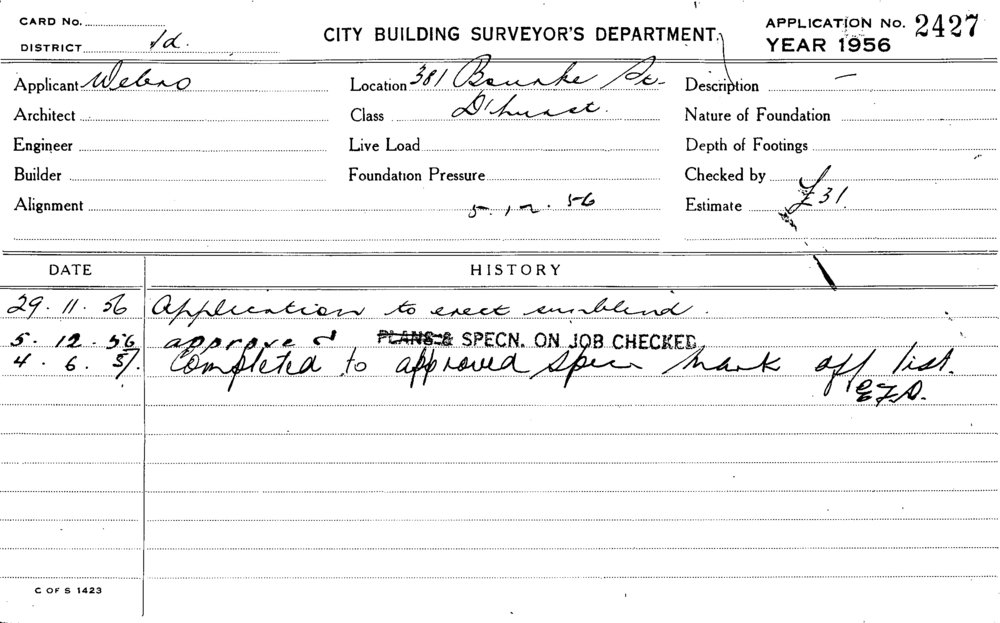 CARD No.
DISTRICT 1d.
CITY BUILDING SURVEYOR'S DEPARTMENT.
APPLICATION No. 2427
YEAR 1956
Applicant Webro Location 381 Bourke St. Description —
Architect Class D'hurst. Nature of Foundation
Engineer Live Load Depth of Footings
Builder Foundation Pressure Checked by
Alignment 5.12.56 Estimate £31.
DATE HISTORY
29.11.56 Application to erect sunblind.
5.12.56 approved PLANS & SPECN. ON JOB CHECKED
4.6.57. Completed to approved specn mark off list.
C OF S 1423